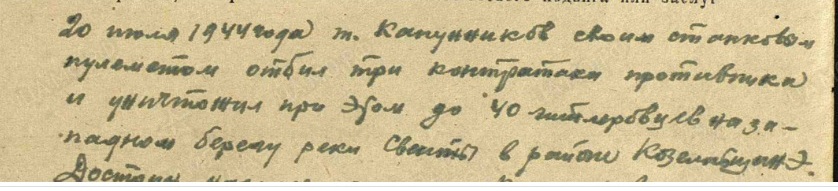 20 июля 1944 года т. Капунников своим станковым
пулеметом отбил три контратаки противника
и уничтожил при этом до 40 гитлеровцев на за-
падном берегу реки в районе
Достоин